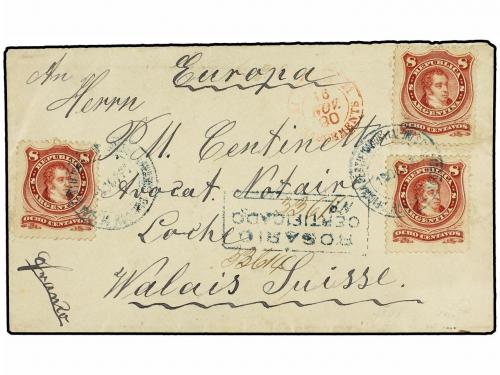 Europa
An Herrn
P. M. Centinetti
Avocat. Notair
Loche
Walais Suisse.
Franco
8 REPUBLICA 8
ARGENTINA
OCHO CENTAVOS
8 REPUBLICA 8
ARGENTINA
OCHO CENTAVOS
8 REPUBLICA 8
ARGENTINA
OCHO CENTAVOS
ROSARIO
CERTIFICADO
No